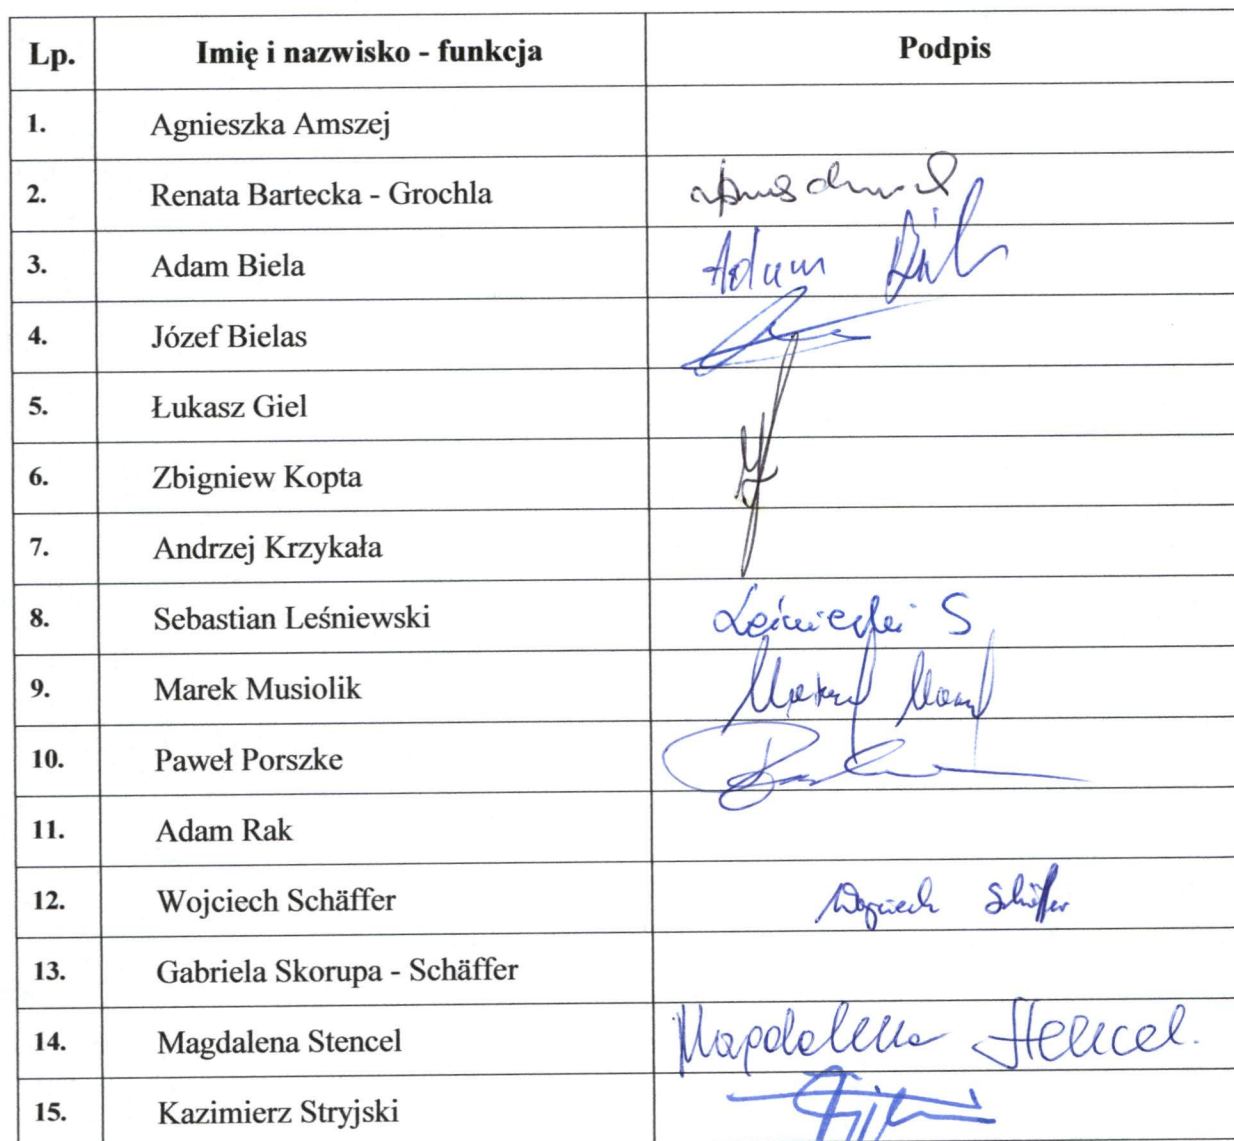 Lp. Imię i nazwisko - funkcja Podpis
1. Agnieszka Amszej
2. Renata Bartecka - Grochla
3. Adam Biela Adam
4. Józef Bielas
5. Łukasz Giel
6. Zbigniew Kopta
7. Andrzej Krzykała
8. Sebastian Leśniewski S
9. Marek Musiolik
10. Paweł Porszke
11. Adam Rak
12. Wojciech Schäffer Wojciech Schäffer
13. Gabriela Skorupa - Schäffer
14. Magdalena Stencel Magdalena Stencel.
15. Kazimierz Stryjski